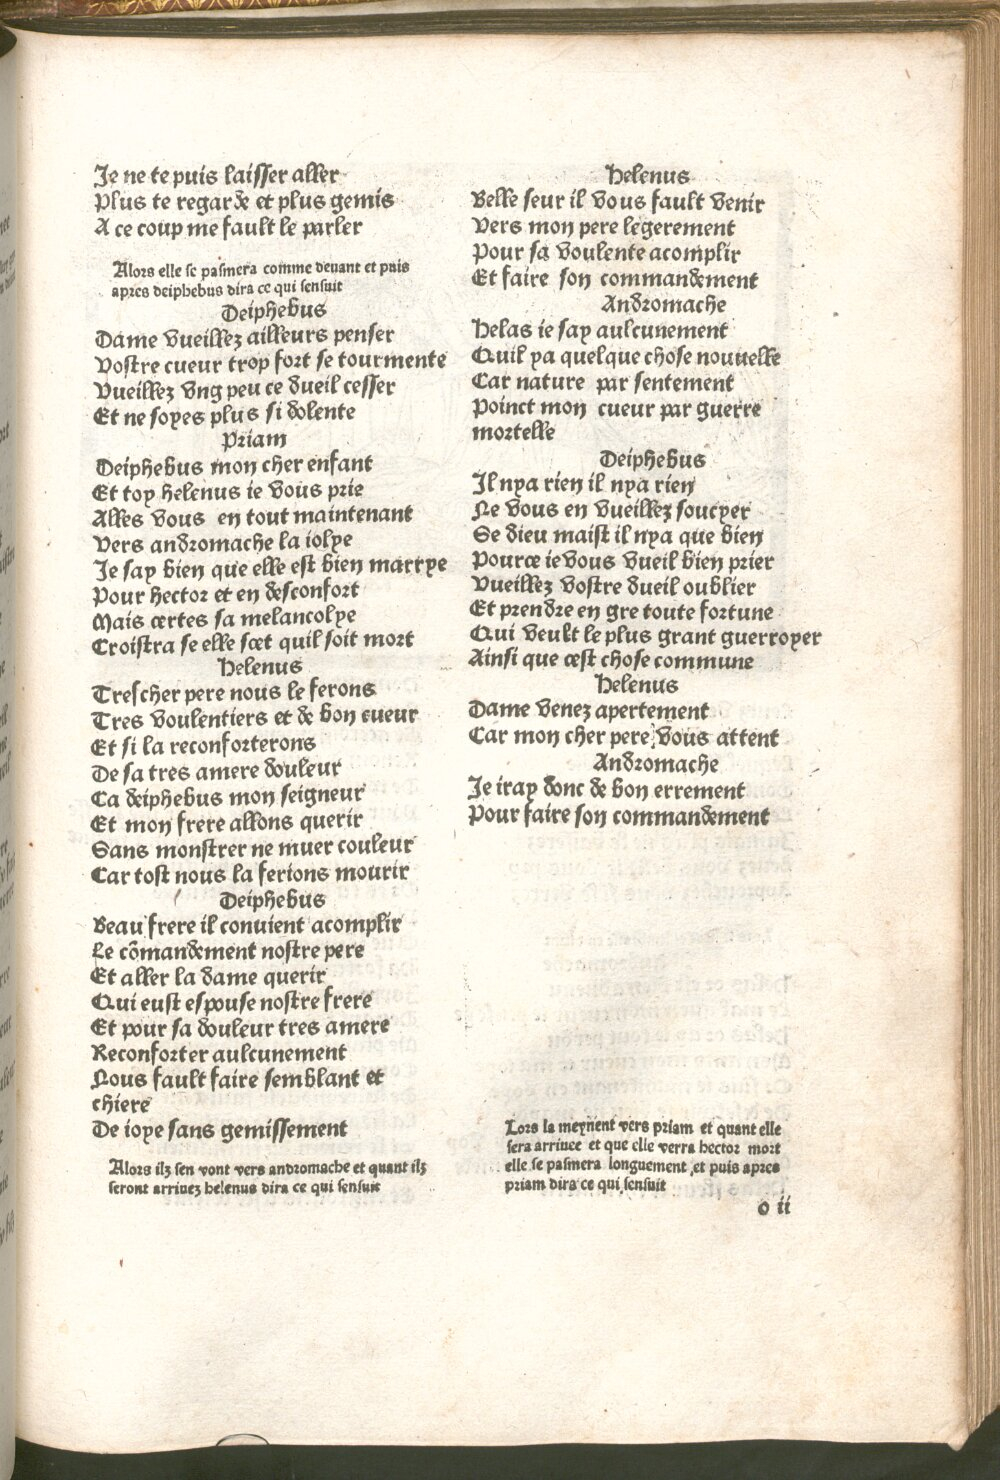 Je ne te puis laisser aller
Plus te regarde et plus gemis
A ce coup me fault le parler
Alors elle se pasmera comme devant et puis
apres deiphebus dira ce qui sensuit
Deiphebus
Dame vueillez ailleurs penser
Vostre cueur trop fort se tourmente
Vueillez vng peu ce dueil cesser
Et ne soyes plus si dolente
Priam
Deiphebus mon cher enfant
Et toy helenus ie vous prie
Alles vous en tout maintenant
Vers andromache la iolye
Je say bien que elle est bien marrye
Pour hector et en desconfort
Mais certes sa melancolye
Croistra se elle scet quil soit mort
Helenus
Trescher pere nous le ferons
Tres voulentiers et de bon cueur
Et si la reconforterons
De sa tres amere douleur
Ca deiphebus mon seigneur
Et mon frere allons querir
Sans monstrer ne muer couleur
Car tost nous la ferions mourir
Deiphebus
Beau frere il conuient acomplir
Le cõmandement nostre pere
Et aller la dame querir
Qui eust espouse nostre frere
Et pour sa douleur tres amere
Reconforter aulcunement
Nous fault faire semblant et
chiere
De ioye sans gemissement
Alors ilz sen vont vers andromache et quant ilz
seront arriuez helenus dira ce qui sensuit
Helenus
Belle seur il vous fault venir
Vers mon pere legerement
Pour sa voulente acomplir
Et faire son commandement
Andromache
Helas ie say aulcunement
Quil ya quelque chose nouuelle
Car nature par sentement
Poinct mon cueur par guerre
mortelle
Deiphebus
Il nya rien il nya rien
Ne vous en vueillez soucyer
Se dieu maist il nya que bien
Pource ie vous vueil bien prier
Vueillez vostre dueil oublier
Et prendre en gre toute fortune
Qui veult le plus grant guerroyer
Ainsi que cest chose commune
Helenus
Dame venez apertement
Car mon cher pere vous attent
Andromache
Je iray donc de bon errement
Pour faire son commandement
Lors la meynent vers priam et quant elle
sera arriuee et que elle verra hector mort
elle se pasmera longuement et puis apres
priam dira ce qui sensuit
o ii